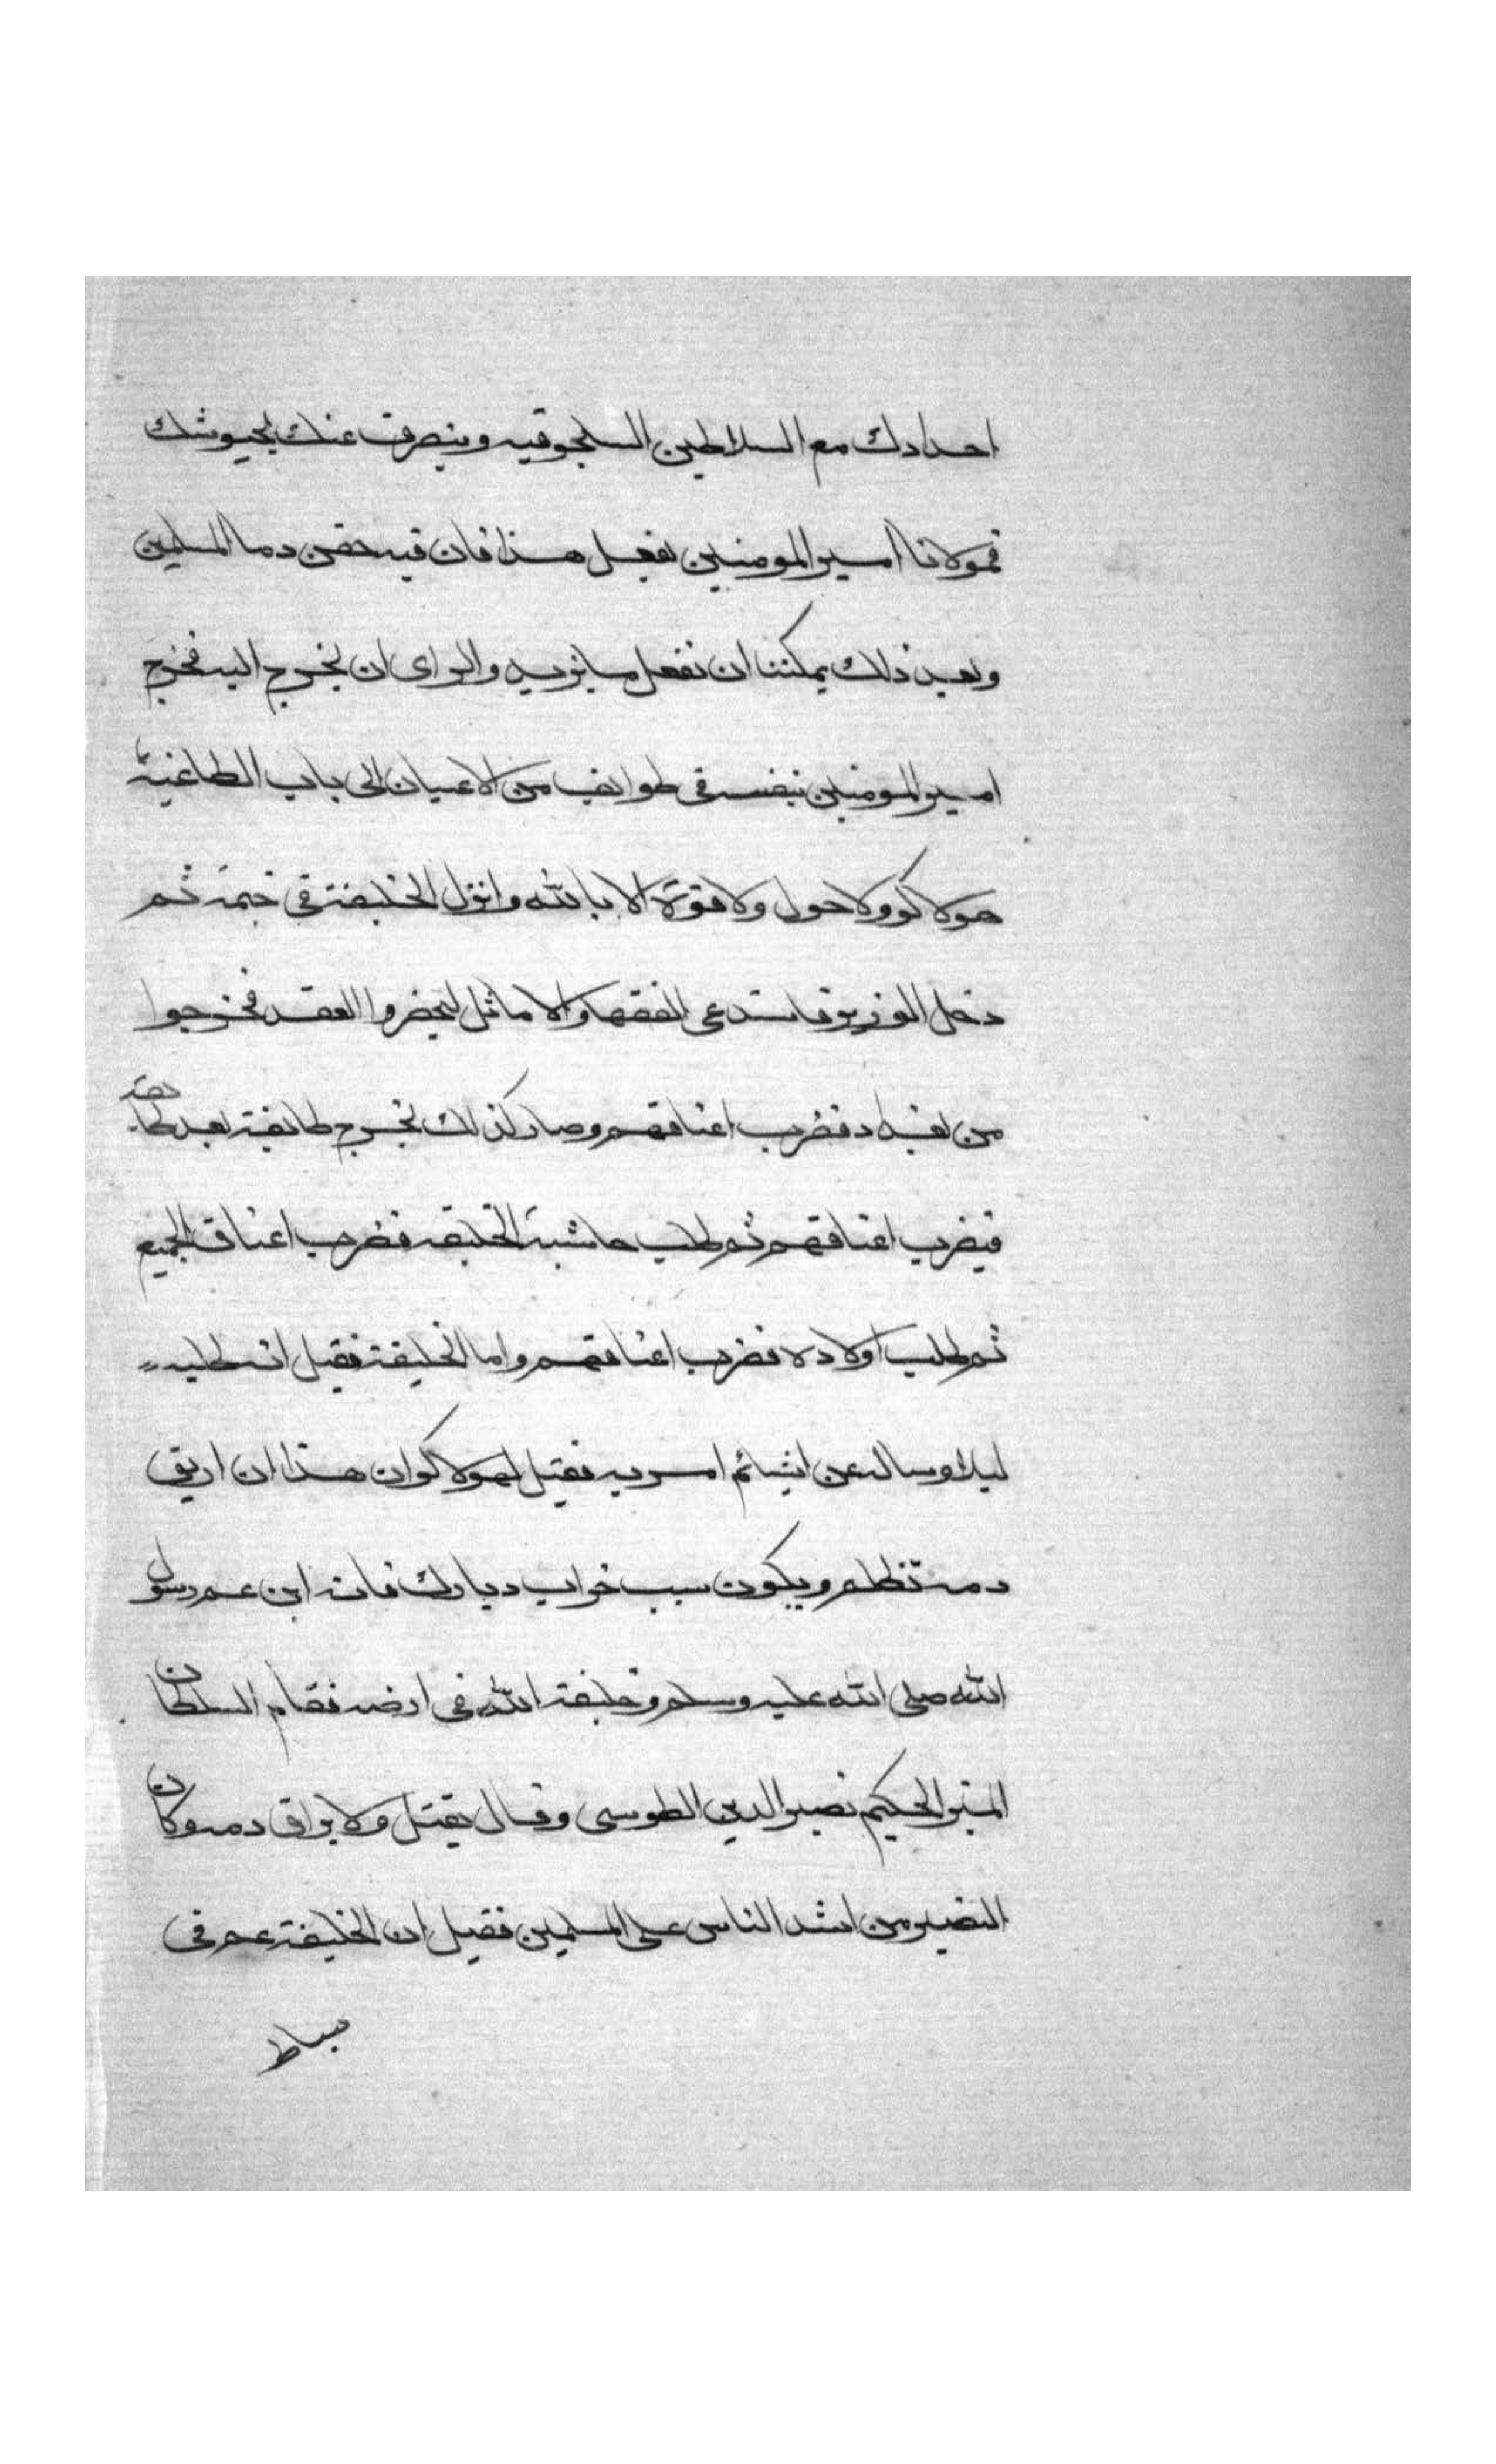 اجدادك مع السلاطين السلجوقيه وينصرف عنك بجيوشك
فمولانا امير المومنين يفعل هذا فان فيه حقن دما المسلمين
وبعد ذلك يمكننا ان نفعل ما نريد والراى ان تخرج اليه فخرج
امير المومنين بنفسه فى طوايف من الاعيان الى باب الطاغية
هولاكو ولا حول ولا قوة الا بالله وانزل الخليفة فى خيمة ثم
دخل الوزير فاستدعى الفقها والاماثل ليحضروا العقد فخرجوا
من بغداد فضرب اعناقهم وصار كذلك تخرج طائفة بعد طائفة
فيضرب اعناقهم ثم طلب حاشية الخليفه فضرب اعناق الجميع
ثم طلب اولاده فضرب اعناقهم واما الخليفة فقيل انه طلبه
ليلا وساله عن اشيا ثم امر به فقيل لهولاكو ان هذا ان اريق
دمه تظلم ويكون سبب خراب ديارك فانه ابن عم رسول
الله صلى الله عليه وسلم وخليفة الله فى ارضه فقام السلطان
المبير الحكيم نصير الدين الطوسى وقال يقتل ولا يراق دمه وكان
النصير من اشد الناس على المسلمين فقيل ان الخليفة عم فى
بساط